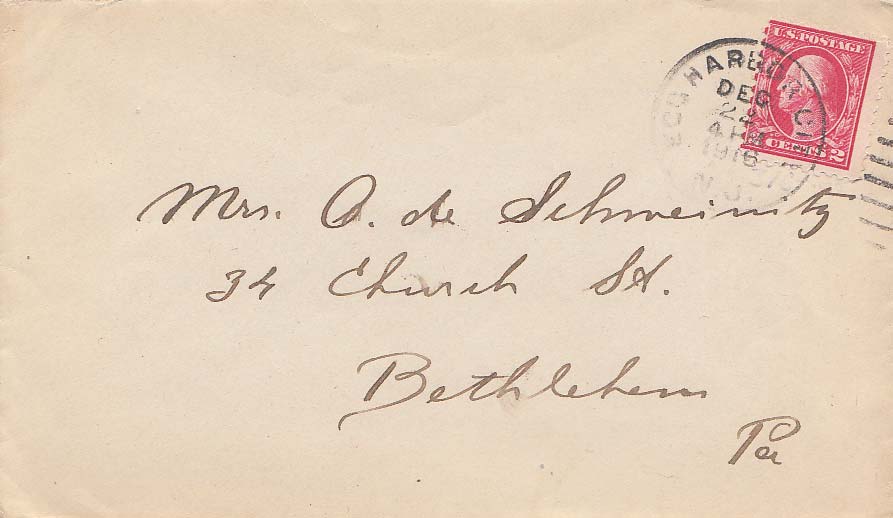 U.S. POSTAGE
2 CENTS 2
EGG HARBOR CITY
DEC
22
4 PM
1916
N.J.
Mrs. A. de Schweinitz
34 Church St.
Bethlehem
Pa